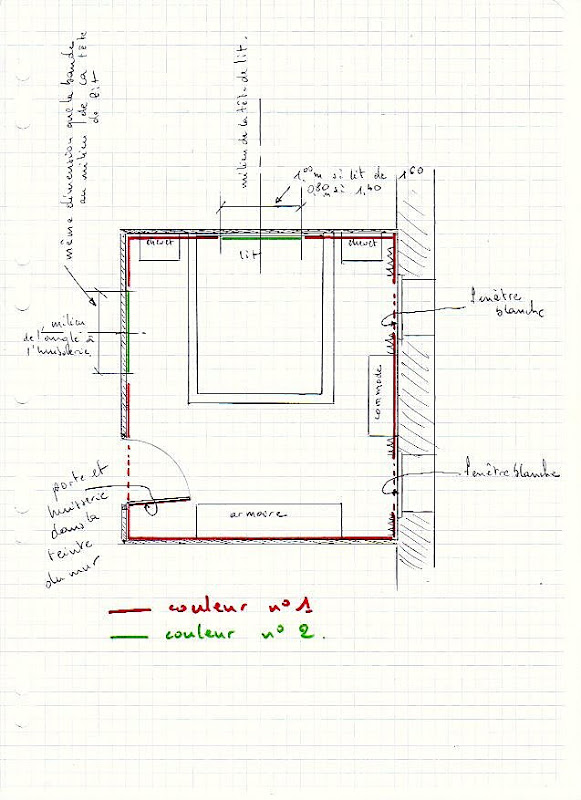 même dimension que la bande
au milieu de la tête
de lit
milieu de la tête de lit.
1,00m si lit de 1,60
0,80m si 1,40
chevet
chevet
lit
fenêtre
blanche
milieu
de l'angle à
l'huisserie
commode
porte et
huisserie
dans la
teinte
du mur
fenêtre blanche
armoire
couleur n° 1
couleur n° 2.